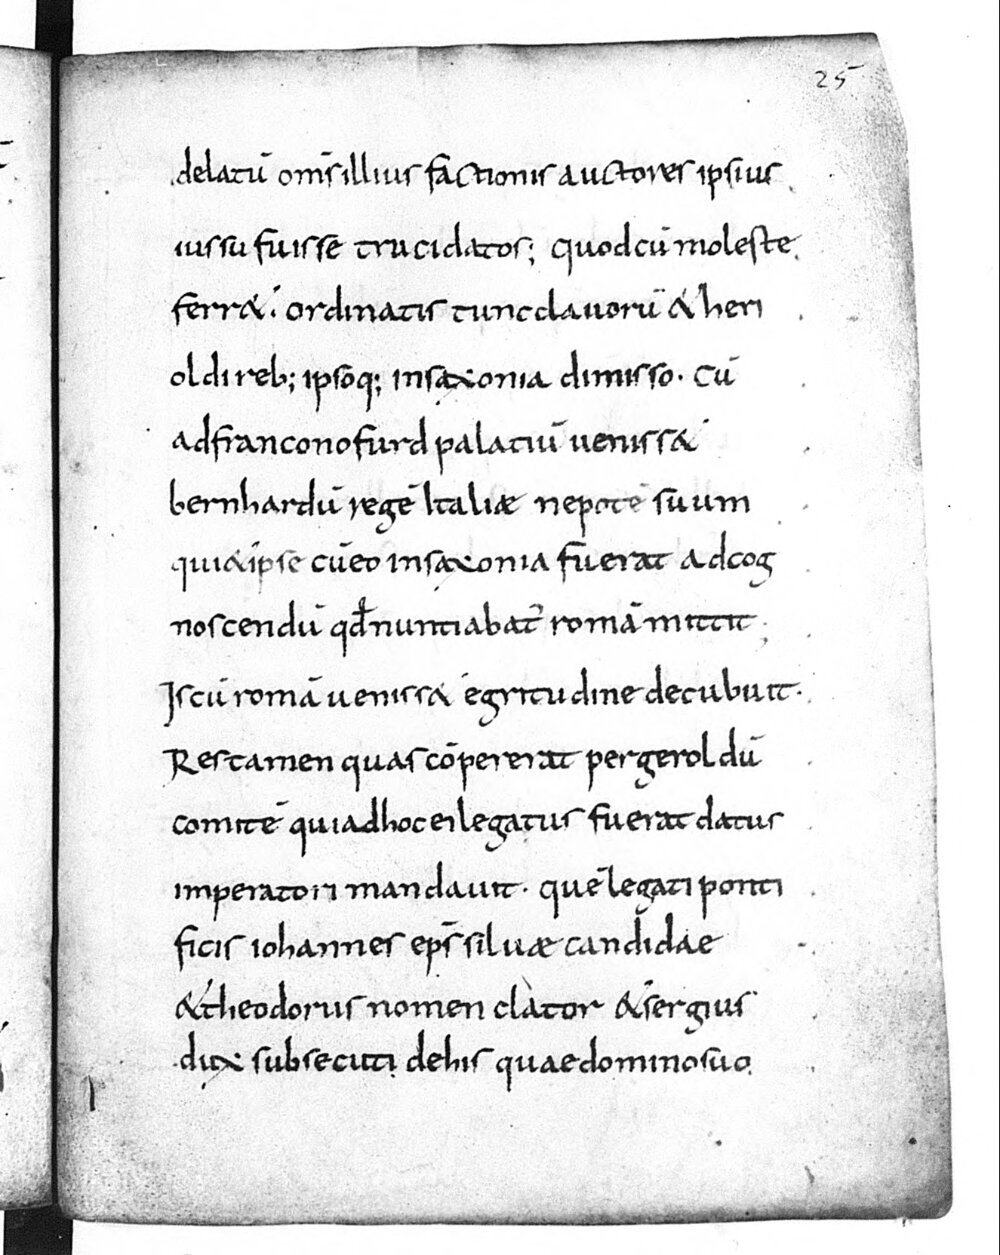 25
delatū om̄s illius factionis auctores ipsius
iussu fuisse trucidatos; quod cū moleste
ferr&. ordinatis tunc clauorū & heri
oldi reb; ipsoq; insaxonia dimisso. Cū
adfranconofurd palatiū uenisset
bernhardū regē Italiæ nepotē suum
qui & ipse cū eo insaxonia fuerat adcog
noscendū qđ nuntiabat̄ romā mittit;
Is cū romā uenissa egritudine decubuit.
Res tamen quas cōpererat per geroldū
comitē qui adhoc ei legatus fuerat datus
imperatori mandauit. quē legati ponti
ficis iohannes ep̄s siluæ candidae
& theodorus nomenclator & sergius
dux subsecuti dehis quae domino suo